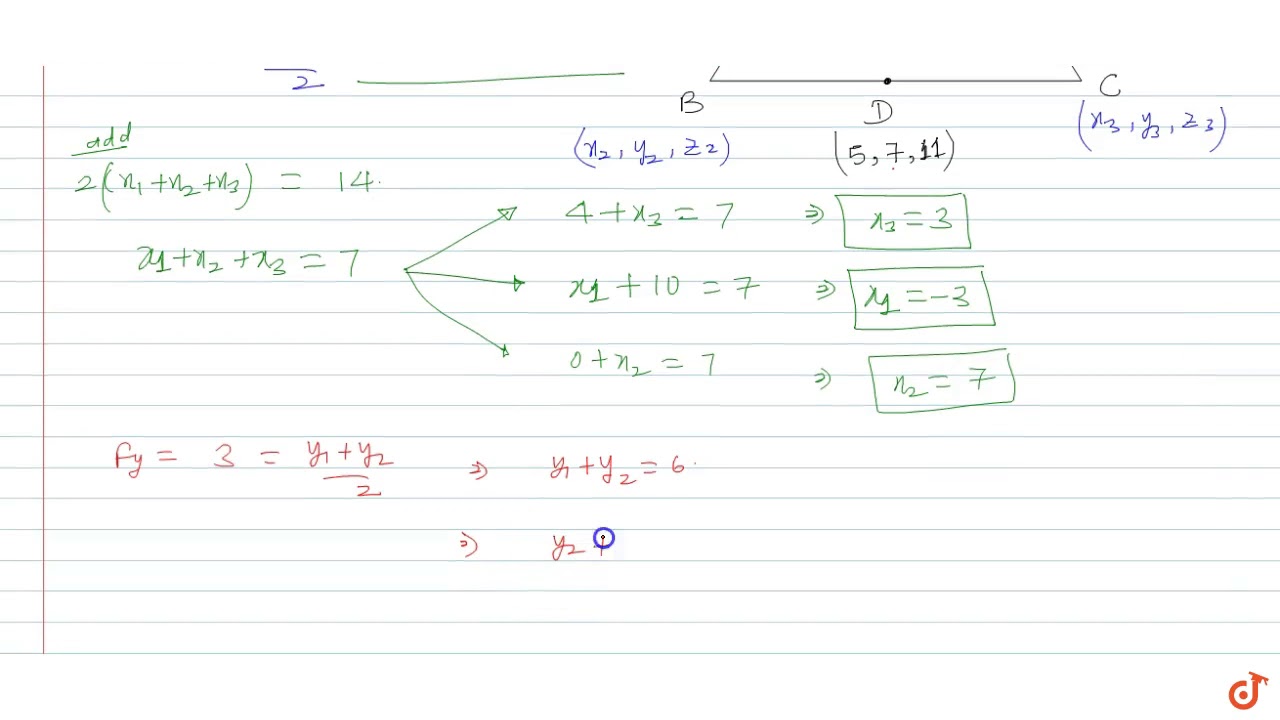 2
B
D
C
(x2, y2, z2)
(5, 7, 11)
(x3, y3, z3)
add
2(x1+x2+x3) = 14.
x1+x2+x3 = 7
4+x3 = 7 ⇒ x3 = 3
x1 + 10 = 7 ⇒ x1 = -3
0+x2 = 7 ⇒ x2 = 7
Fy = 3 = y1+y2 / 2 ⇒ y1+y2 = 6.
⇒ y2 +